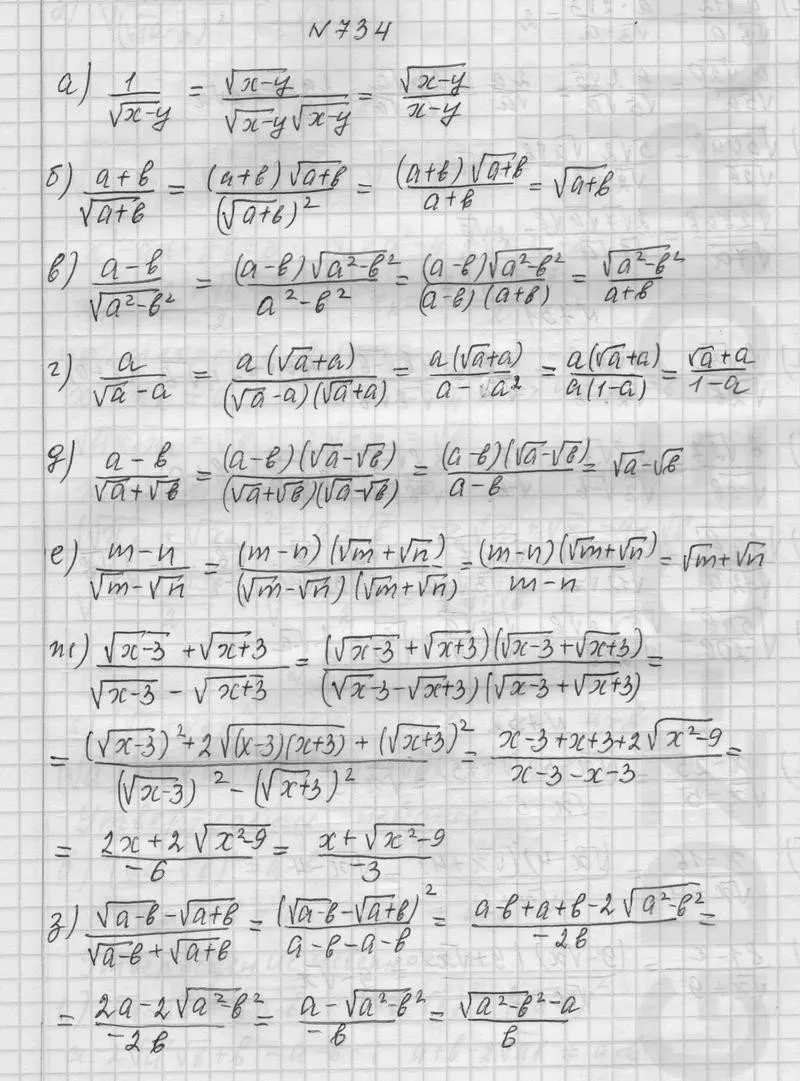 №734
а) 1/√(x-y) = √(x-y)/(√(x-y)√(x-y)) = √(x-y)/(x-y)
б) (a+b)/√(a+b) = (a+b)√(a+b)/(√(a+b))² = (a+b)√(a+b)/(a+b) = √(a+b)
в) (a-b)/√(a²-b²) = (a-b)√(a²-b²)/(a²-b²) = (a-b)√(a²-b²)/((a-b)(a+b)) = √(a²-b²)/(a+b)
г) a/(√a-a) = a(√a+a)/((√a-a)(√a+a)) = a(√a+a)/(a-a²) = a(√a+a)/(a(1-a)) = (√a+a)/(1-a)
д) (a-b)/(√a+√b) = (a-b)(√a-√b)/((√a+√b)(√a-√b)) = (a-b)(√a-√b)/(a-b) = √a-√b
е) (m-n)/(√m-√n) = (m-n)(√m+√n)/((√m-√n)(√m+√n)) = (m-n)(√m+√n)/(m-n) = √m+√n
ж) (√(x-3)+√(x+3))/(√(x-3)-√(x+3)) = (√(x-3)+√(x+3))(√(x-3)+√(x+3))/((√(x-3)-√(x+3))(√(x-3)+√(x+3))) =
= ((√(x-3))²+2√((x-3)(x+3))+(√(x+3))²)/((√(x-3))²-(√(x+3))²) = (x-3+x+3+2√(x²-9))/(x-3-x-3) =
= (2x+2√(x²-9))/(-6) = (x+√(x²-9))/(-3)
з) (√(a-b)-√(a+b))/(√(a-b)+√(a+b)) = (√(a-b)-√(a+b))²/(a-b-a-b) = (a-b+a+b-2√(a²-b²))/(-2b) =
= (2a-2√(a²-b²))/(-2b) = (a-√(a²-b²))/(-b) = (√(a²-b²)-a)/b